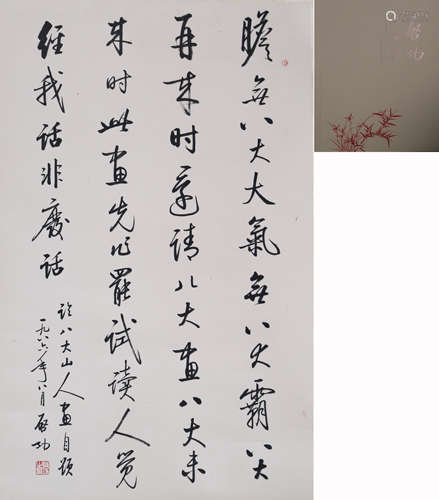 膽無八大大氣無八大霸八大
再來時還請八大畫八大未
來時此畫先作罷試讀人覺
經我話非廢話
論八大山人畫自題
一九八六年八月 啟功
啟功